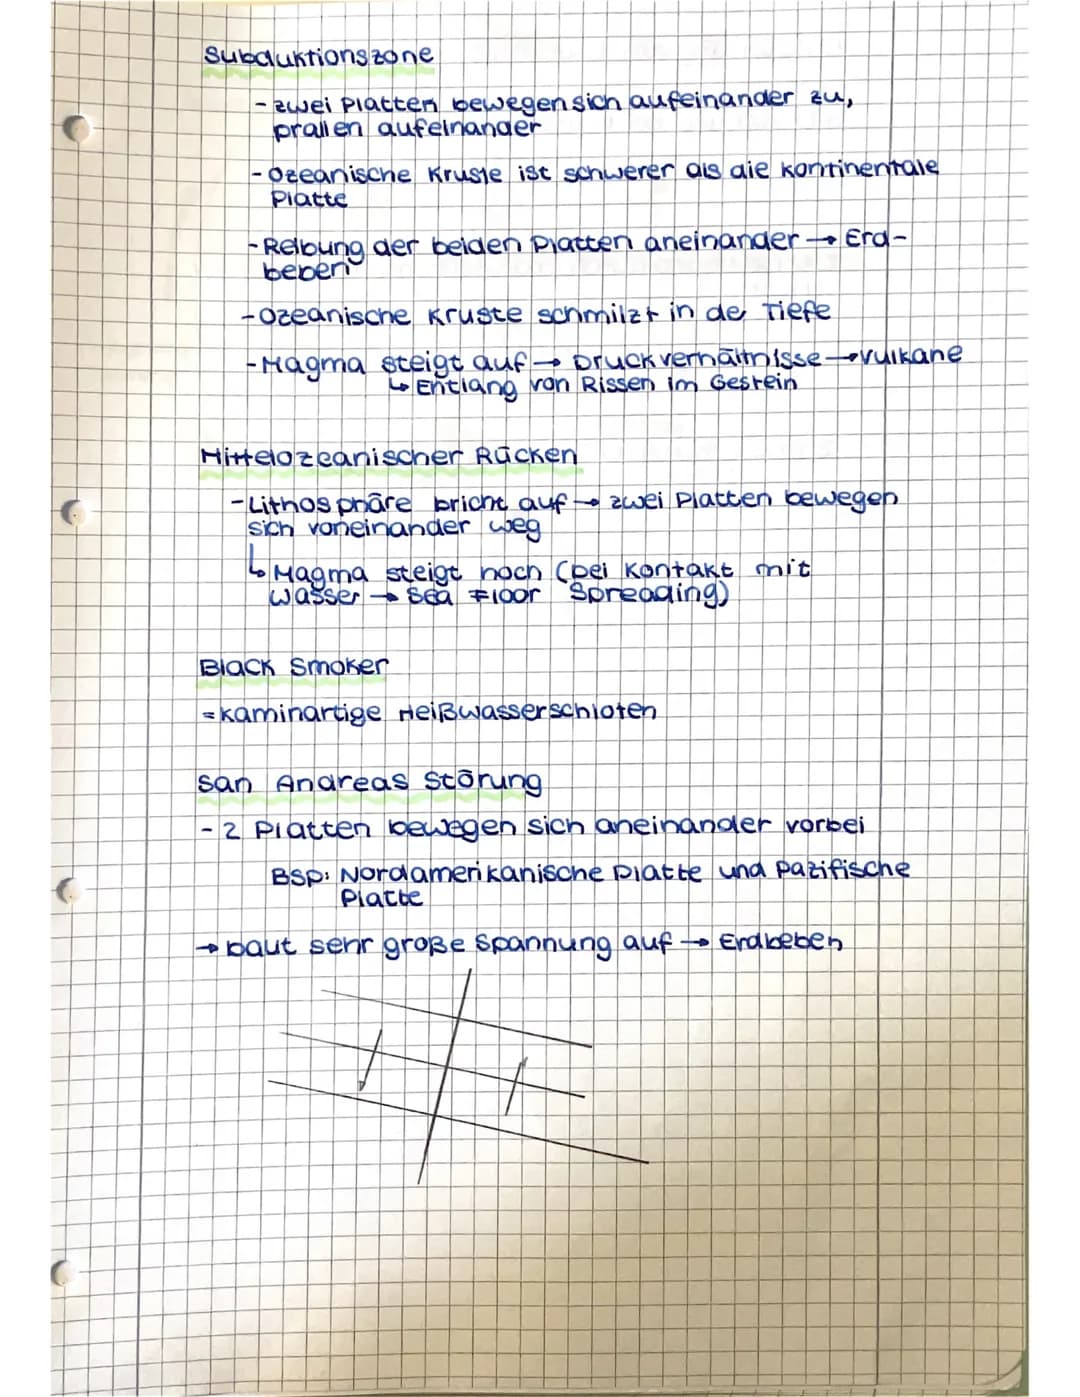 Subduktionszone
- zwei Platten bewegen sich aufeinander zu,
prallen aufeinander
- Ozeanische Kruste ist schwerer als die kontinentale
Platte
- Reibung der beiden Platten aneinander → Erd-
beben
- Ozeanische Kruste schmilzt in de Tiefe
- Magma steigt auf → Druckverhältnisse → Vulkane
↳ Entlang von Rissen im Gestein
Mittelozeanischer Rücken
- Lithosphäre bricht auf → zwei Platten bewegen
sich voneinander weg
↳ Magma steigt hoch (bei Kontakt mit
Wasser → Sea Floor Spreading)
Black Smoker
= kaminartige Heißwasserschloten
San Andreas Störung
- 2 Platten bewegen sich aneinander vorbei
BSP: Nordamerikanische Platte und Pazifische
Platte
→ baut sehr große Spannung auf → Erdbeben